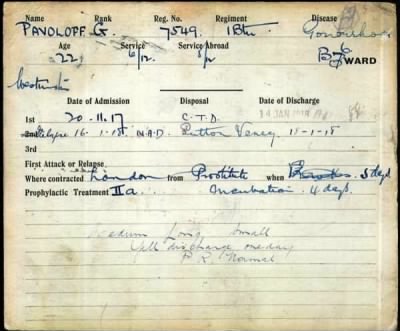 Name Rank Reg. No. Regiment Disease
PAVOLOFF. G. 7549. 1 Btn Gonorrhoea
Age Service Service Abroad
22 6/12. 8/12 B WARD
Date of Admission Disposal Date of Discharge
1st 20-11.17 C.T.D. 14 JAN 1918
2nd Relapse 16-1-18 N.A.D. Sutton Veney
3rd
First Attack or Relapse
Where contracted London from Prostitute when 5 days
Prophylactic Treatment IIa Incubation. 4 days.
Long small
discharge one day
P.R. Normal